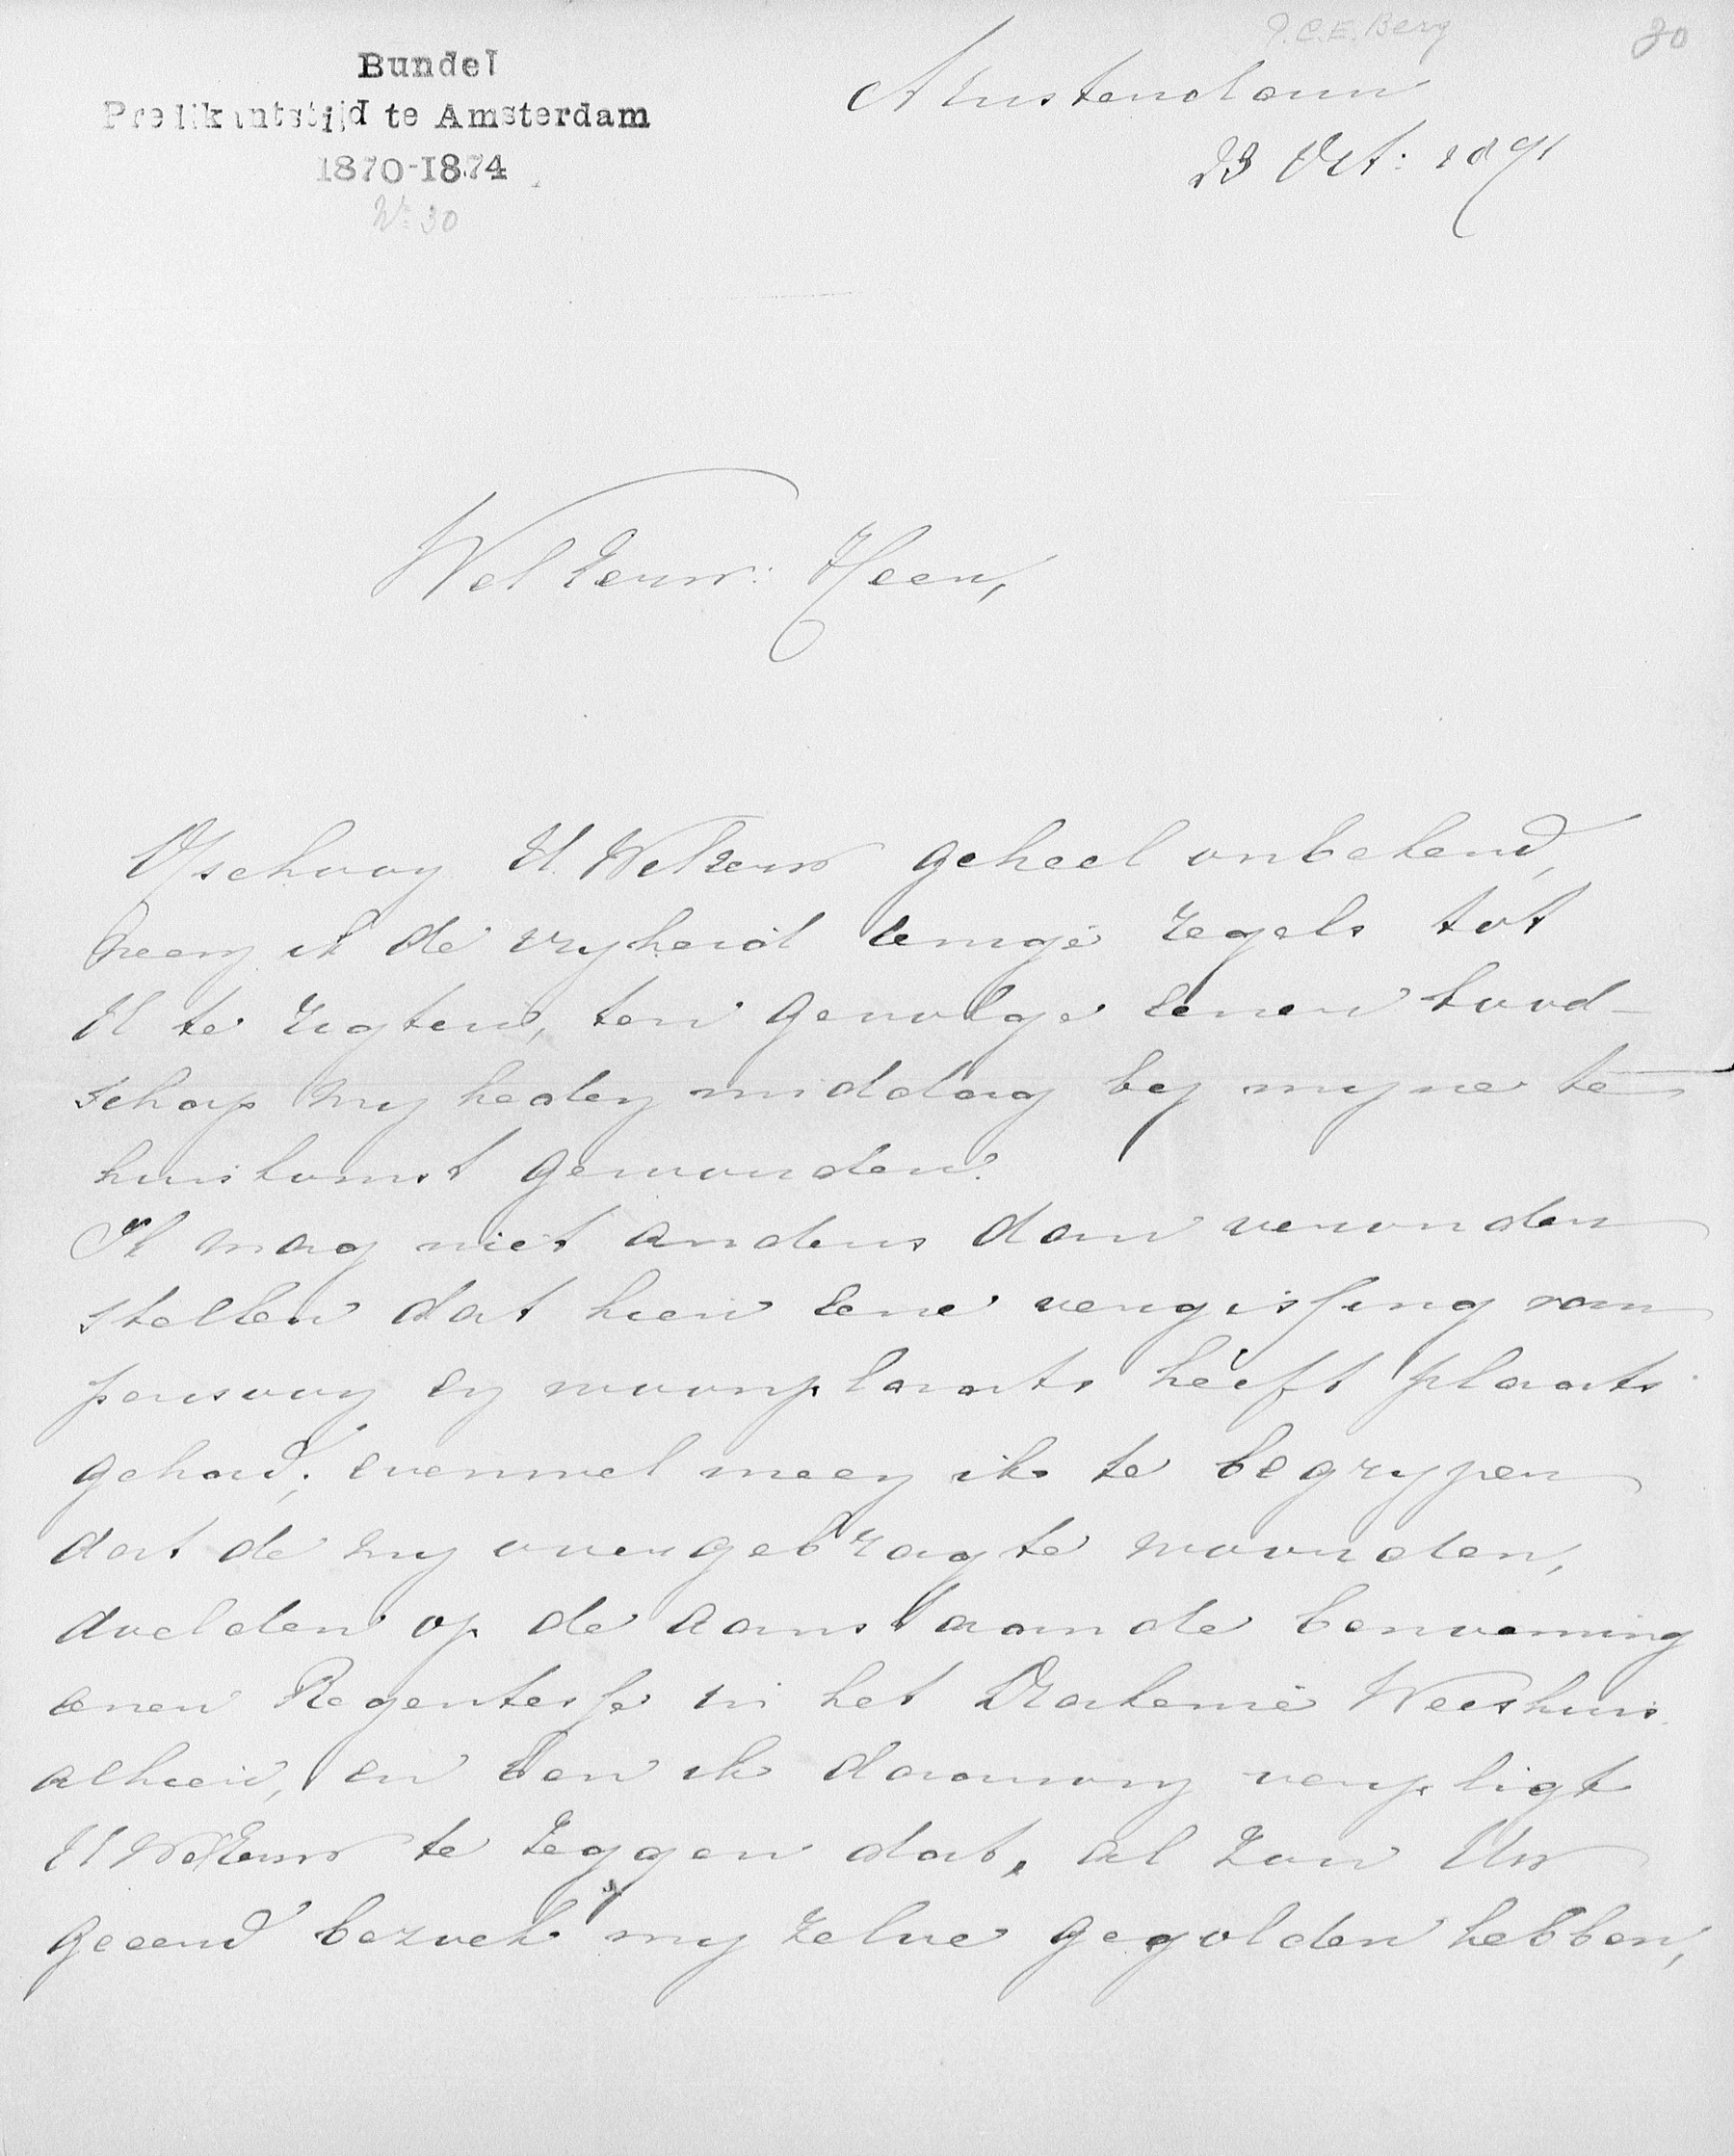 P.C.E. Berg 30
Bundel
Predikantstijd te Amsterdam
1870-1874
No 30
Amsterdam
23 Oct: 1871
Wel Eerw: Heer,
Ofschoon U WelEerw geheel onbekend,
neem ik de vryheid eenige regels tot
U te rigten, ten gevolge eener bood-
schap my heden middag by myne te
huiskomst geworden.
Ik mag niet anders dan veronder
stellen dat hier eene vergissing van
persoon en woonplaats heeft plaats
gehad; evenwel meen ik te begrypen
dat de my overgebragte woorden,
doelden op de aanstaande benoeming
eener Regentesse in het Diakenie Weeshuis
alhier, en ben ik daarom verpligt
U WelEerw te zeggen dat, al zou Uw
geeerd bezoek my zelve gegolden hebben,